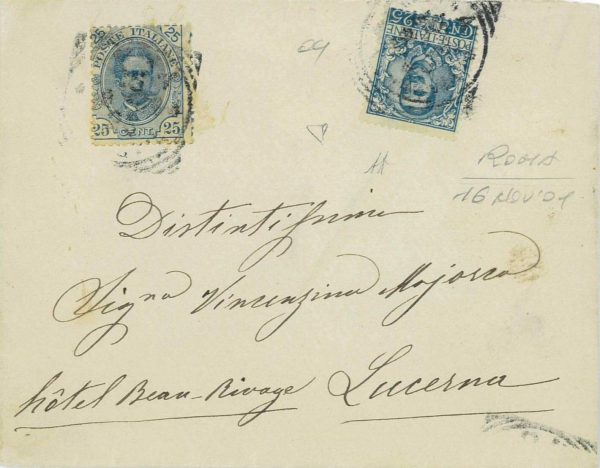 25 25
POSTE ITALIANE
25 CENT. 25
CENT. 25
POSTE ITALIANE
ROMA
16 NOV '01
Distintissima
Signa Vincenzina Majorca
hôtel Beau-Rivage Lucerna